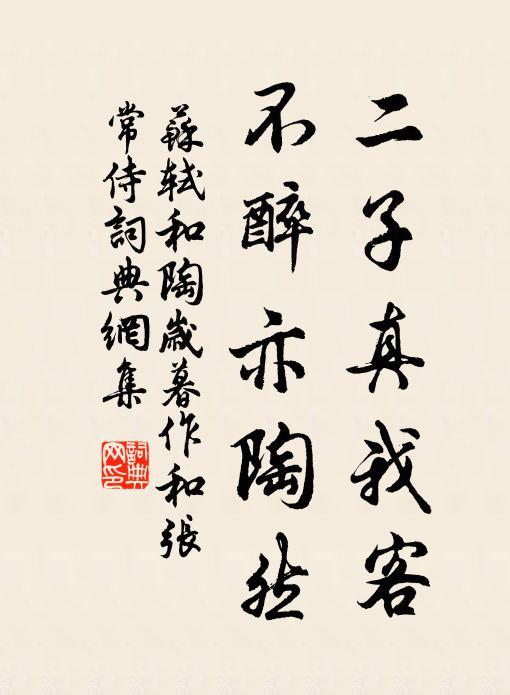 二子真我客
不醉亦陶然
蘇軾和陶歲暮作和張
常侍詞典網集
詞典
网印